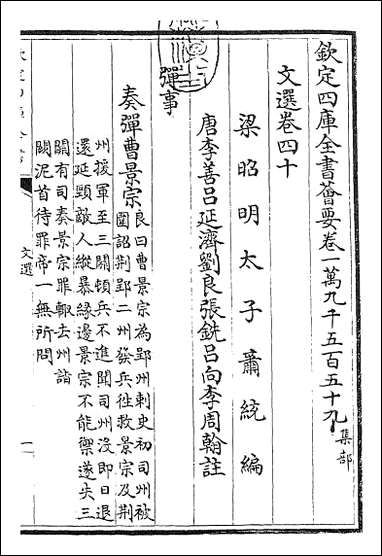 欽定四庫全書薈要卷一萬九千五百五十九 集部
文選卷四十
梁昭明太子蕭統編
唐李善呂延濟劉良張銑呂向李周翰註
彈事
奏彈曹景宗 良曰曹景宗為郢州刺史初司州被
圍詔荆郢二州發兵往救景宗及荆
州援軍至三關頓兵不進聞司州沒即日退
還延頸敵人縱暴緣邊景宗不能禦遂失三
關有司奏景宗罪輙去州詣
闕泥首待罪帝一無所問
文選
一